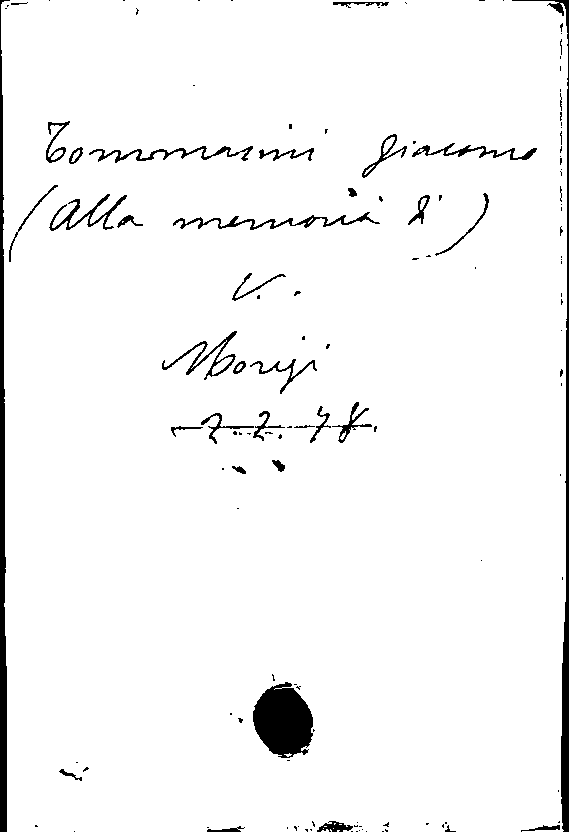 Tommasini Giacomo
(Alla memoria di)
V.
Morigi
2.2.78.